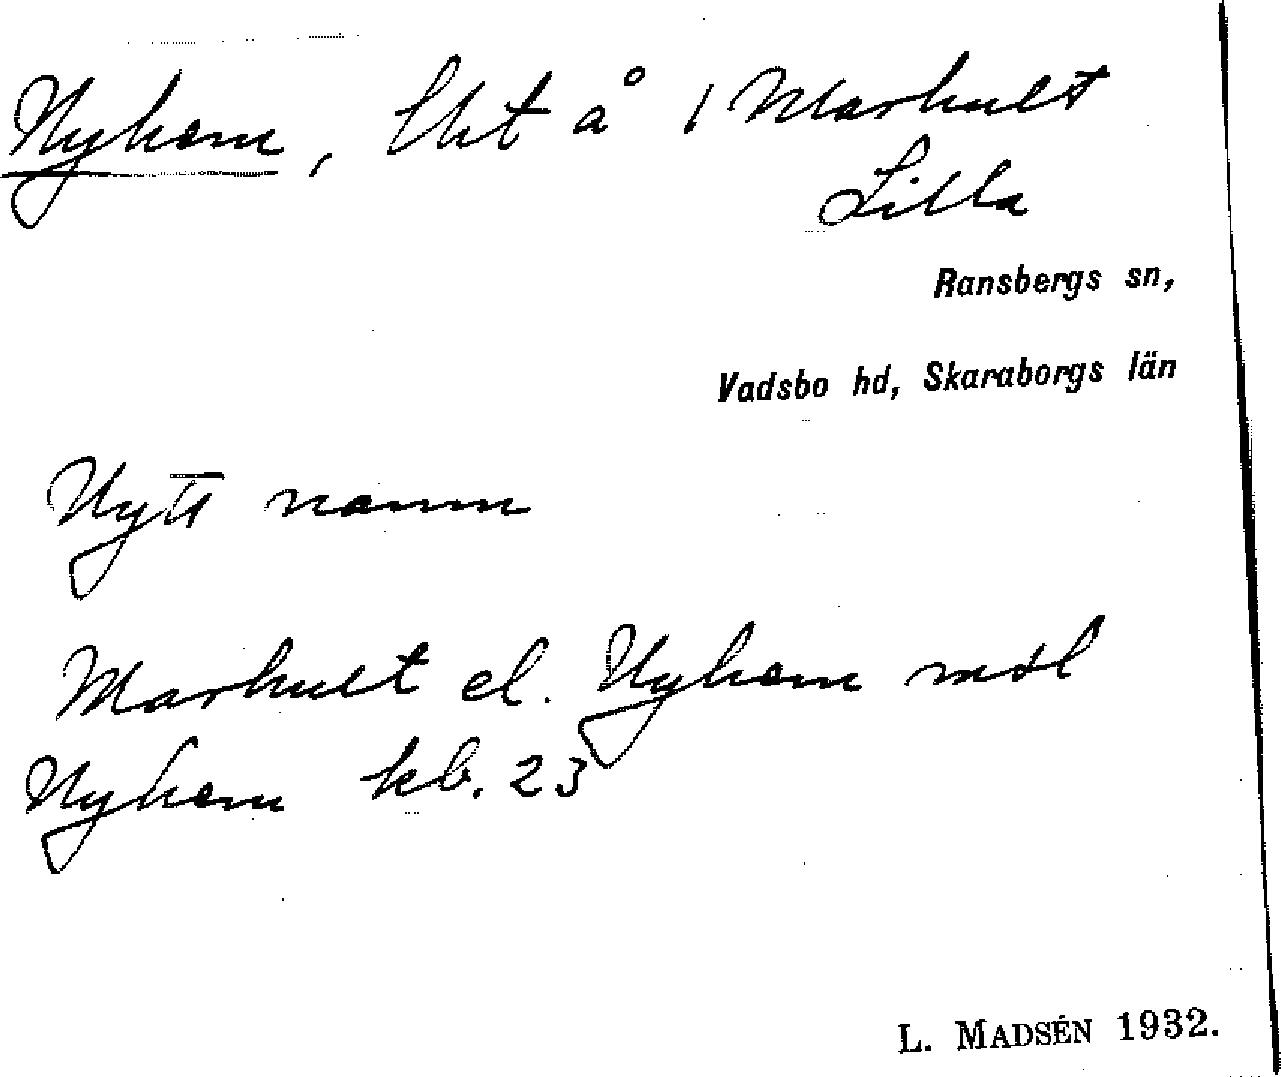 Nyhem, lht å 1 Markult
Lilla
Ransbergs sn,
Vadsbo hd, Skaraborgs län
Nytt namn
Markult el. Nyhem msl
Nyhem kb. 23
L. MADSÉN 1932.